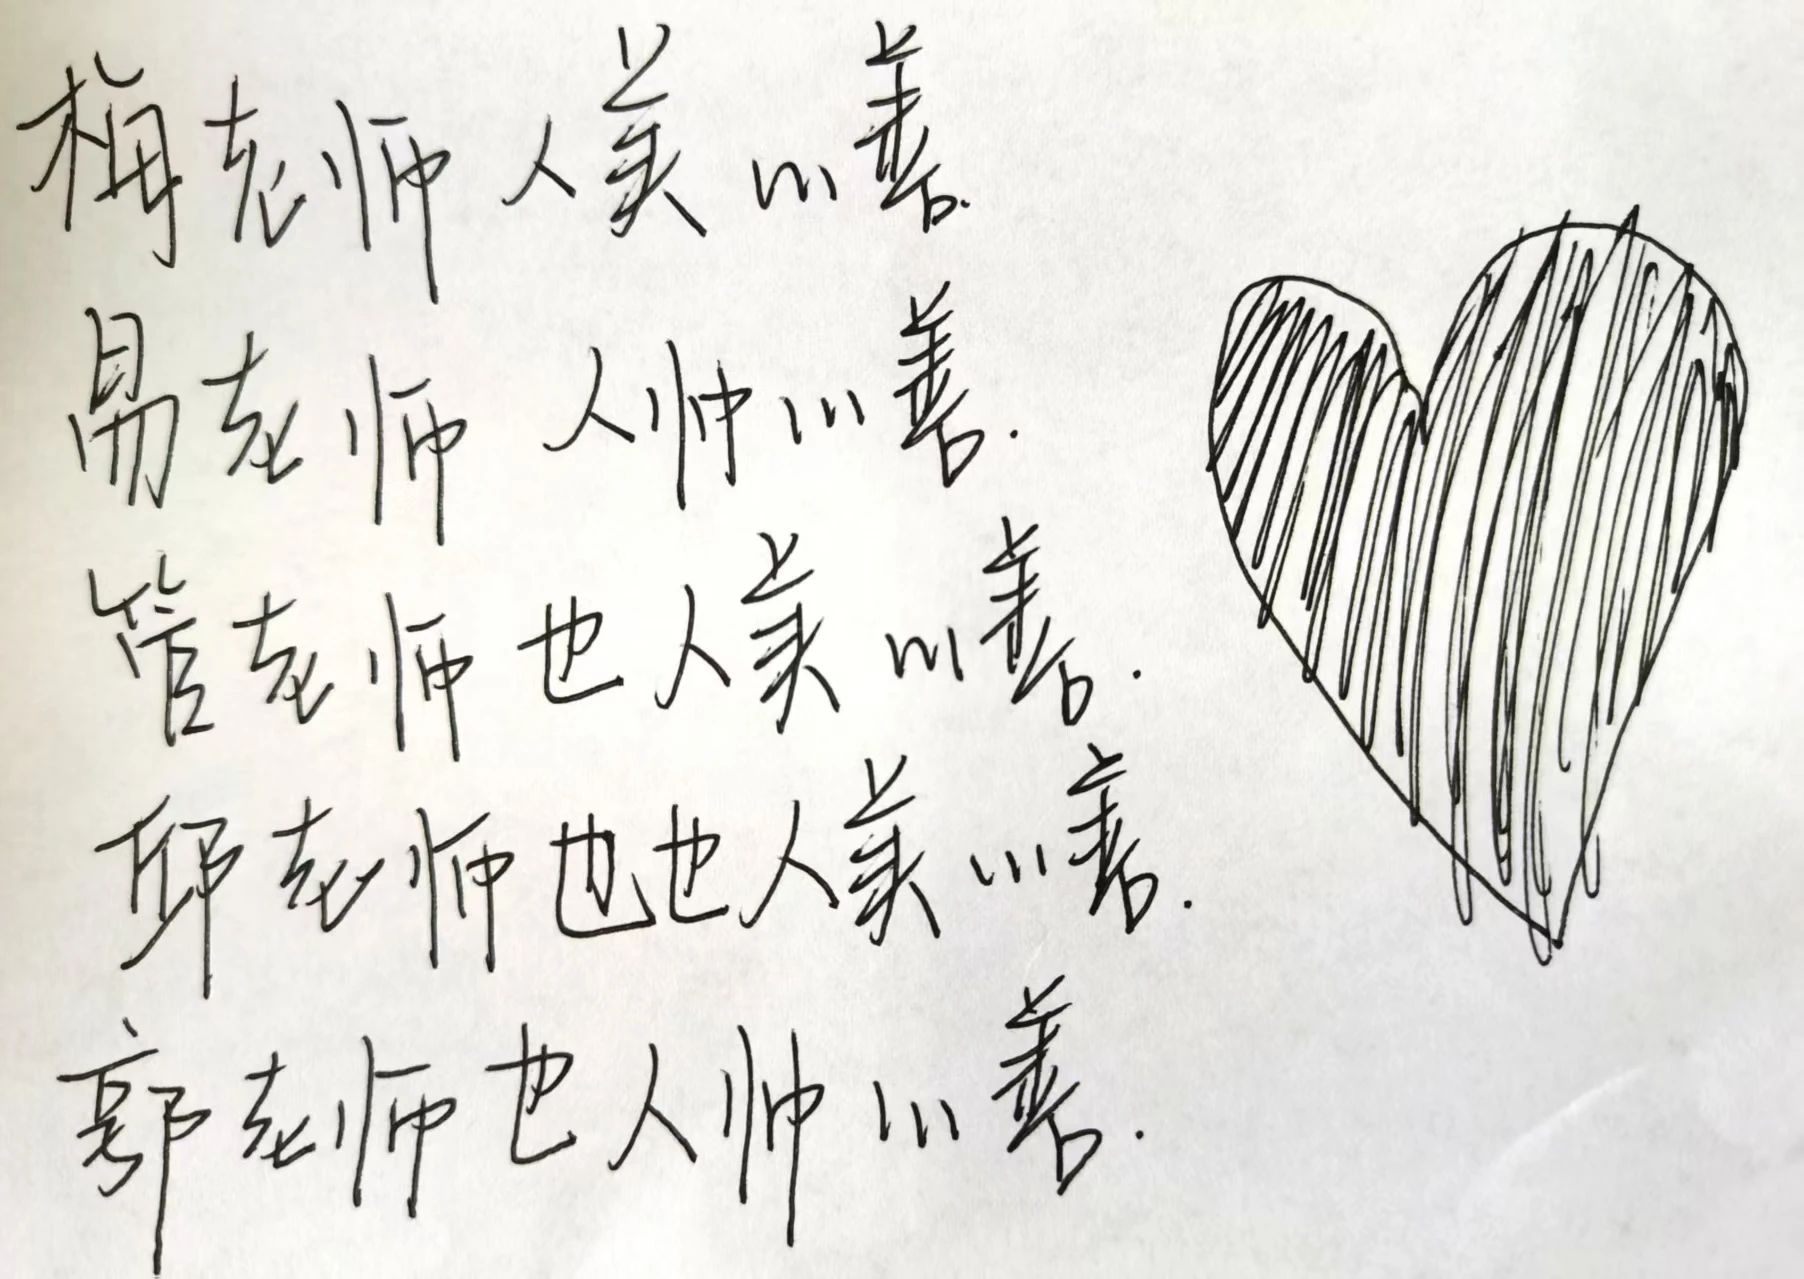 梅老师人美心善.
易老师人帅心善.
管老师也人美心善.
邱老师也也人美心善.
郭老师也人帅心善.